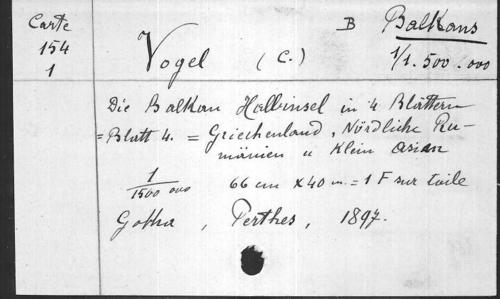 Carte
154
1
B Balkans
Vogel (C.) 1/1.500.000
Die Balkan Halbinsel in 4 Blättern
= Blatt 4. = Griechenland, Nördliche Ru-
mänien u Klein Asien
1/1500 000 66 cm x 40 m. = 1 F sur toile
Gotha, Perthes, 1897.